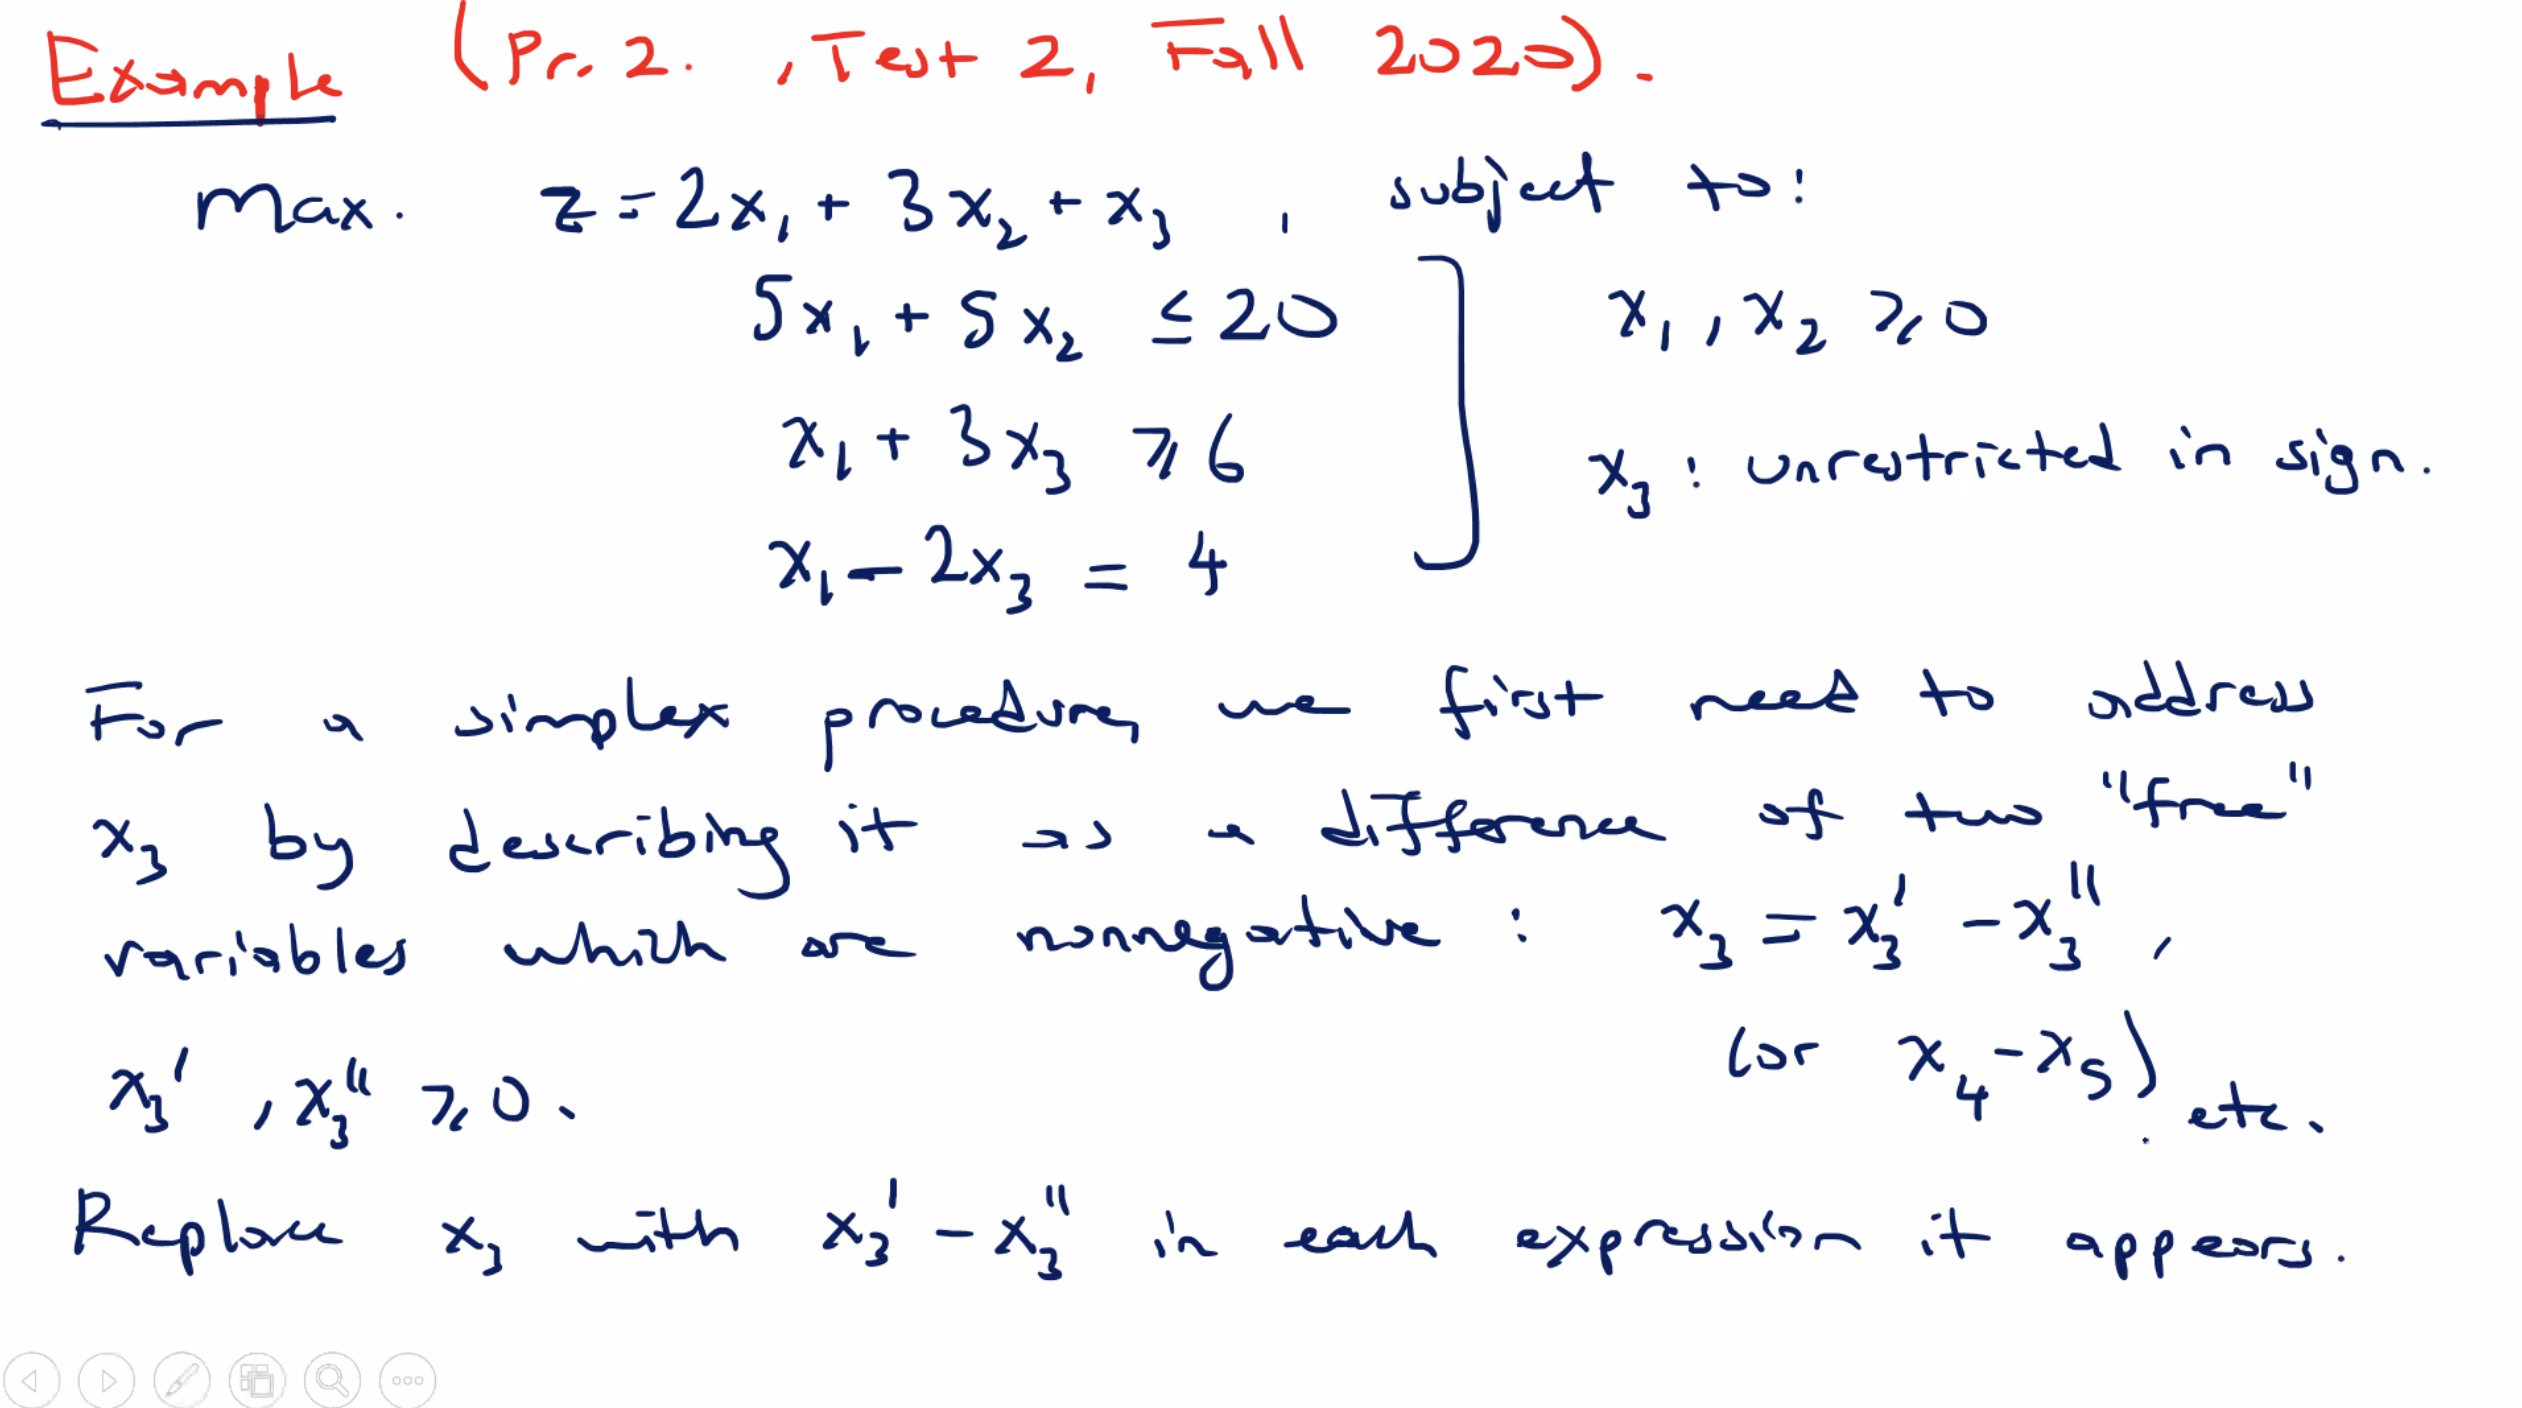 Example (Pr. 2. , Test 2, Fall 2020).
max. z = 2x₁ + 3x₂ + x₃ , subject to:
5x₁ + 5x₂ ≤ 20
x₁, x₂ ≥ 0
x₁ + 3x₃ ≥ 6
x₃ : unrestricted in sign.
x₁ - 2x₃ = 4
For a simplex procedure, we first need to address
x₃ by describing it as a difference of two "free"
variables which are nonnegative : x₃ = x₃' - x₃'' ,
(or x₄ - x₅) etc.
x₃' , x₃'' ≥ 0.
Replace x₃ with x₃' - x₃'' in each expression it appears.